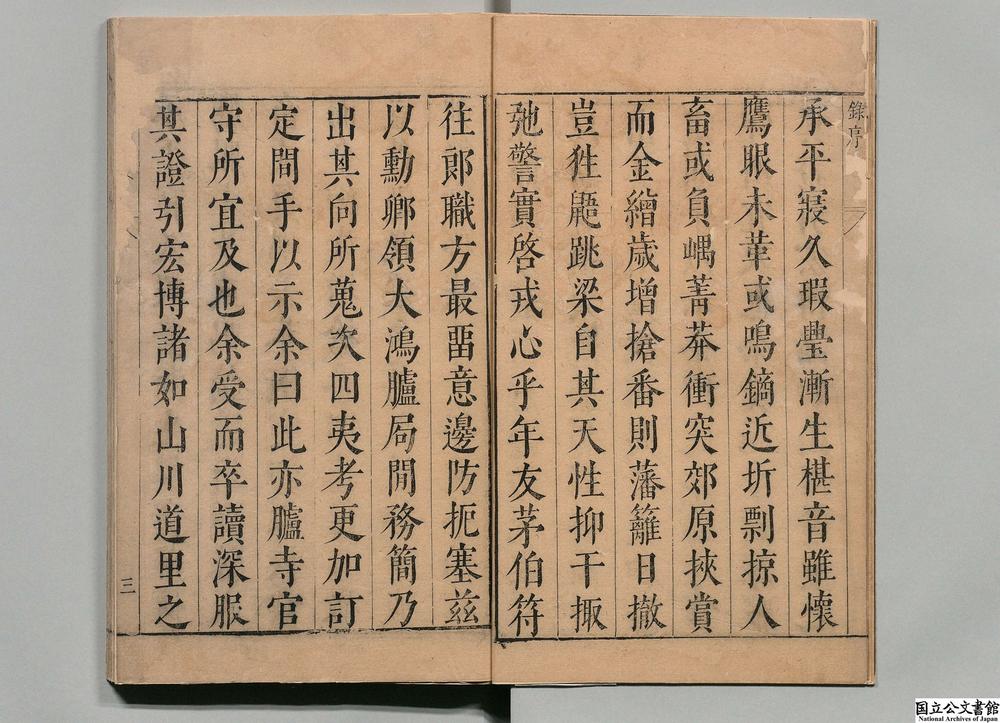 錄序
承平寢久瑕舋漸生椹音雖懷
鷹眼未革或鳴鏑近圻剽掠人
畜或負嵎菁莽衝突郊原挾賞
而金繒歲增搶番則藩籬日撤
豈狌鼯跳梁自其天性抑干掫
弛警實啓戎心乎年友茅伯符
往郎職方最留意邊防扼塞茲
以勳卿領大鴻臚局閒務簡乃
出其向所蒐次四夷考更加訂
定間手以示余曰此亦臚寺官
守所宜及也余受而卒讀深服
其證引宏博諸如山川道里之
三
国立公文書館
National Archives of Japan